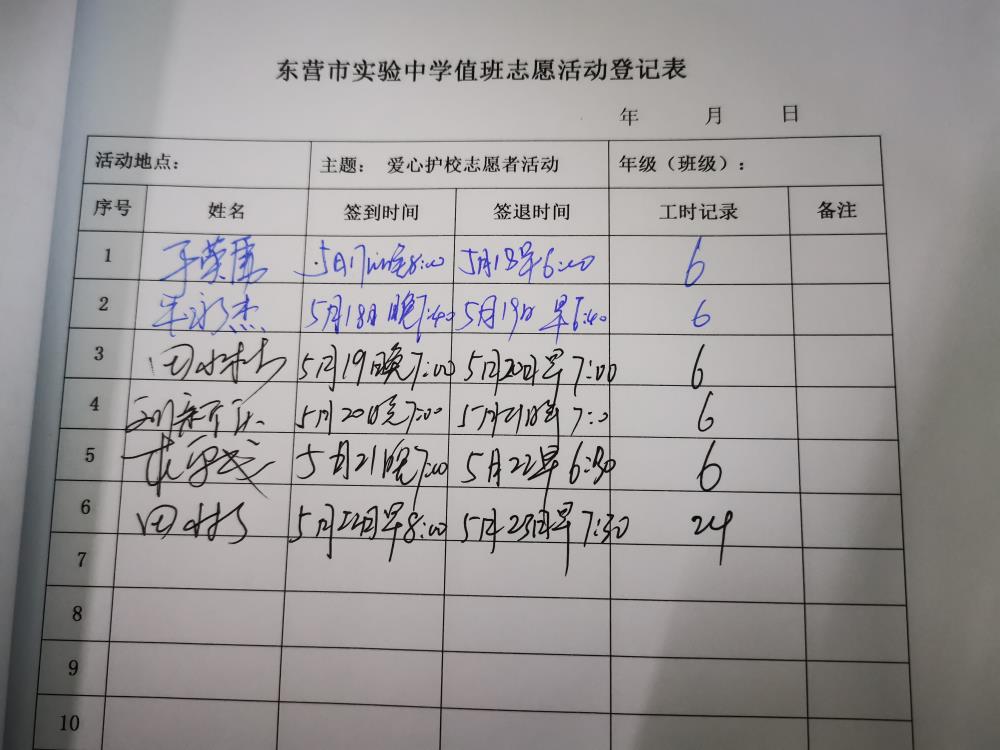 东营市实验中学值班志愿活动登记表
年 月 日
活动地点: 主题: 爱心护校志愿者活动 年级（班级）:
序号 姓名 签到时间 签退时间 工时记录 备注
1 于荣 5月17日晚8:00 5月18早6:00 6
2 牛永杰 5月18日晚7:40 5月19日早6:40 6
3 田 5月19日晚7:00 5月20日早7:00 6
4 刘新 5月20日晚7:00 5月21日 7:0 6
5 5月21晚7:00 5月22早6:30 6
6 田 5月22日早8:00 5月23日早7:30 24
7
8
9
10